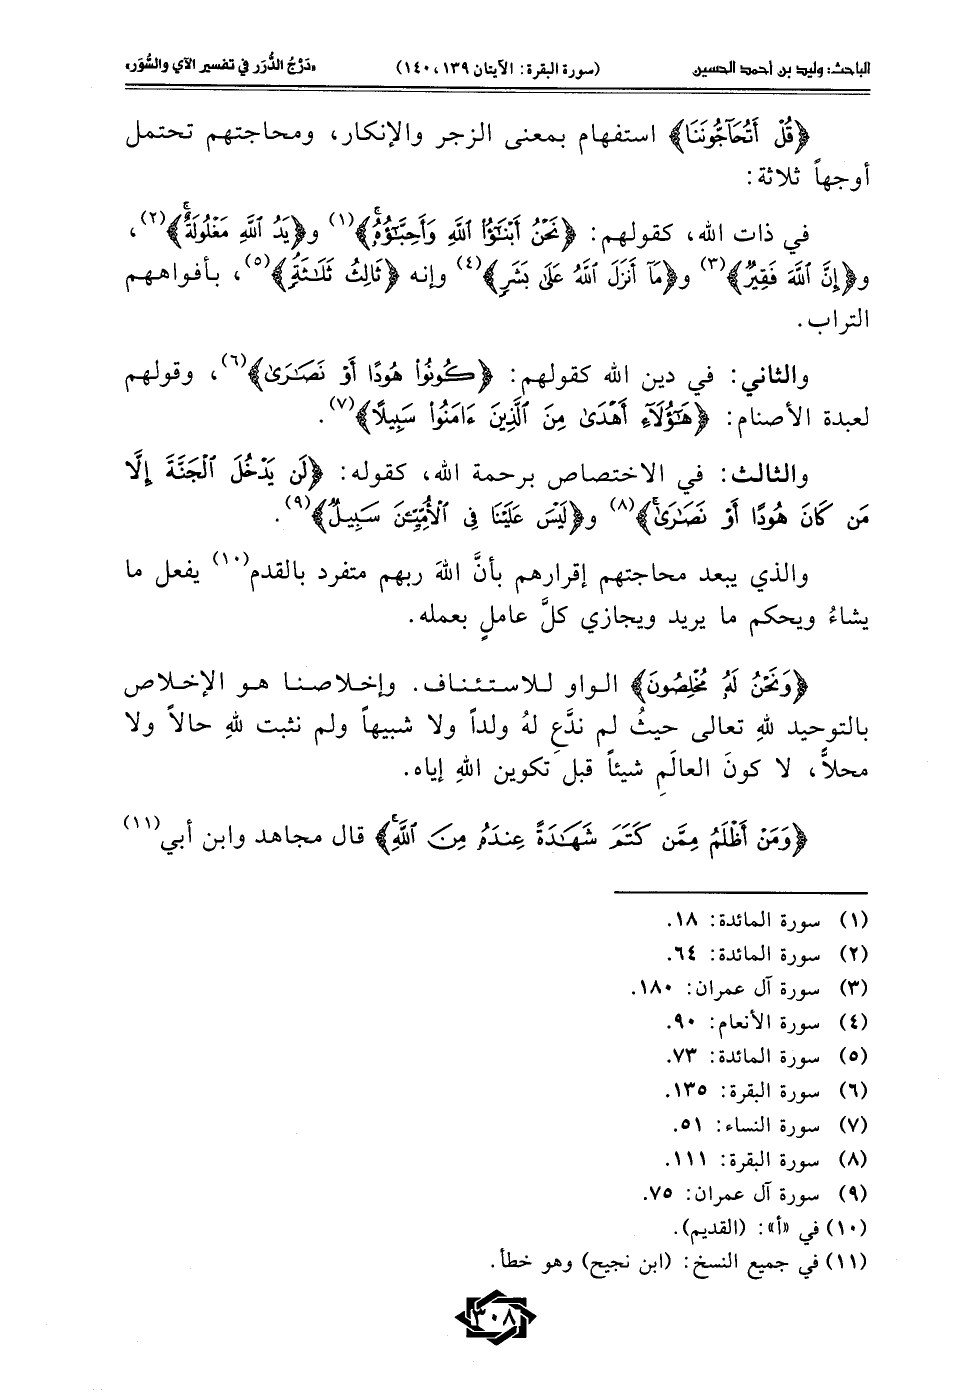 الباحث: وليد بن أحمد الحسين (سورة البقرة: الآيتان ١٣٩، ١٤٠) «دَرْجُ الدُّرَر في تفسير الآي والسُّوَر»
﴿قُلْ أَتُحَآجُّونَنَا﴾ استفهام بمعنى الزجر والإنكار، ومحاجتهم تحتمل
أوجهاً ثلاثة:
في ذات الله، كقولهم: ﴿نَحْنُ أَبْنَٰٓؤُا۟ ٱللَّهِ وَأَحِبَّٰٓؤُهُۥ ۚ﴾(١) و﴿يَدُ ٱللَّهِ مَغْلُولَةٌ ۚ﴾(٢)،
و﴿إِنَّ ٱللَّهَ فَقِيرٌ﴾(٣) و﴿مَآ أَنزَلَ ٱللَّهُ عَلَىٰ بَشَرٍ﴾(٤) وإنه ﴿ثَالِثُ ثَلَٰثَةٍ﴾(٥)، بأفواههم
التراب.
والثاني: في دين الله كقولهم: ﴿كُونُوا۟ هُودًا أَوْ نَصَٰرَىٰ﴾(٦)، وقولهم
لعبدة الأصنام: ﴿هَٰٓؤُلَآءِ أَهْدَىٰ مِنَ ٱلَّذِينَ ءَامَنُوا۟ سَبِيلًا﴾(٧).
والثالث: في الاختصاص برحمة الله، كقوله: ﴿لَن يَدْخُلَ ٱلْجَنَّةَ إِلَّا
مَن كَانَ هُودًا أَوْ نَصَٰرَىٰ ۗ﴾(٨) و﴿لَيْسَ عَلَيْنَا فِى ٱلْأُمِّيِّـۧنَ سَبِيلٌ﴾(٩).
والذي يبعد محاجتهم إقرارهم بأنَّ اللهَ ربهم متفرد بالقدم(١٠) يفعل ما
يشاءُ ويحكم ما يريد ويجازي كلَّ عاملٍ بعمله.
﴿وَنَحْنُ لَهُۥ مُخْلِصُونَ﴾ الواو للاستئناف. وإخلاصنا هو الإخلاص
بالتوحيد للهِ تعالى حيثُ لم ندَّعِ لهُ ولداً ولا شبيهاً ولم نثبت للهِ حالاً ولا
محلاًّ، لا كونَ العالَمِ شيئاً قبل تكوين اللهِ إياه.
﴿وَمَنْ أَظْلَمُ مِمَّن كَتَمَ شَهَٰدَةً عِندَهُۥ مِنَ ٱللَّهِ ۗ﴾ قال مجاهد وابن أبي(١١)
(١) سورة المائدة: ١٨.
(٢) سورة المائدة: ٦٤.
(٣) سورة آل عمران: ١٨٠.
(٤) سورة الأنعام: ٩٠.
(٥) سورة المائدة: ٧٣.
(٦) سورة البقرة: ١٣٥.
(٧) سورة النساء: ٥١.
(٨) سورة البقرة: ١١١.
(٩) سورة آل عمران: ٧٥.
(١٠) في «أ»: (القديم).
(١١) في جميع النسخ: (ابن نجيح) وهو خطأ.
٣٠٨